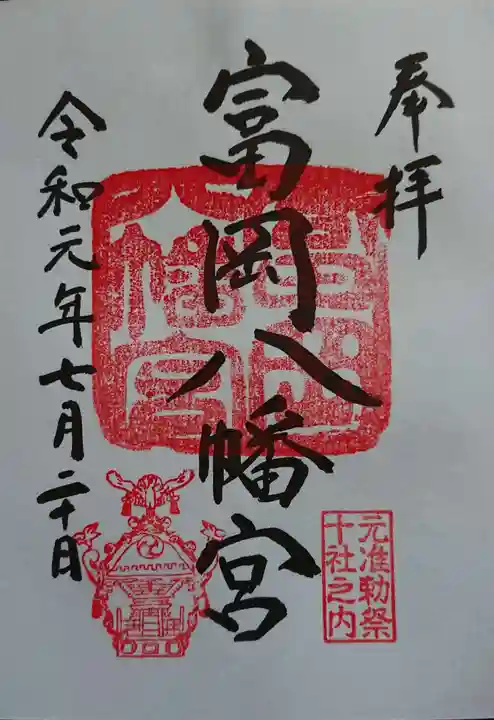 奉拝
富岡八幡宮
令和元年七月二十日
元准勅祭
十社之内